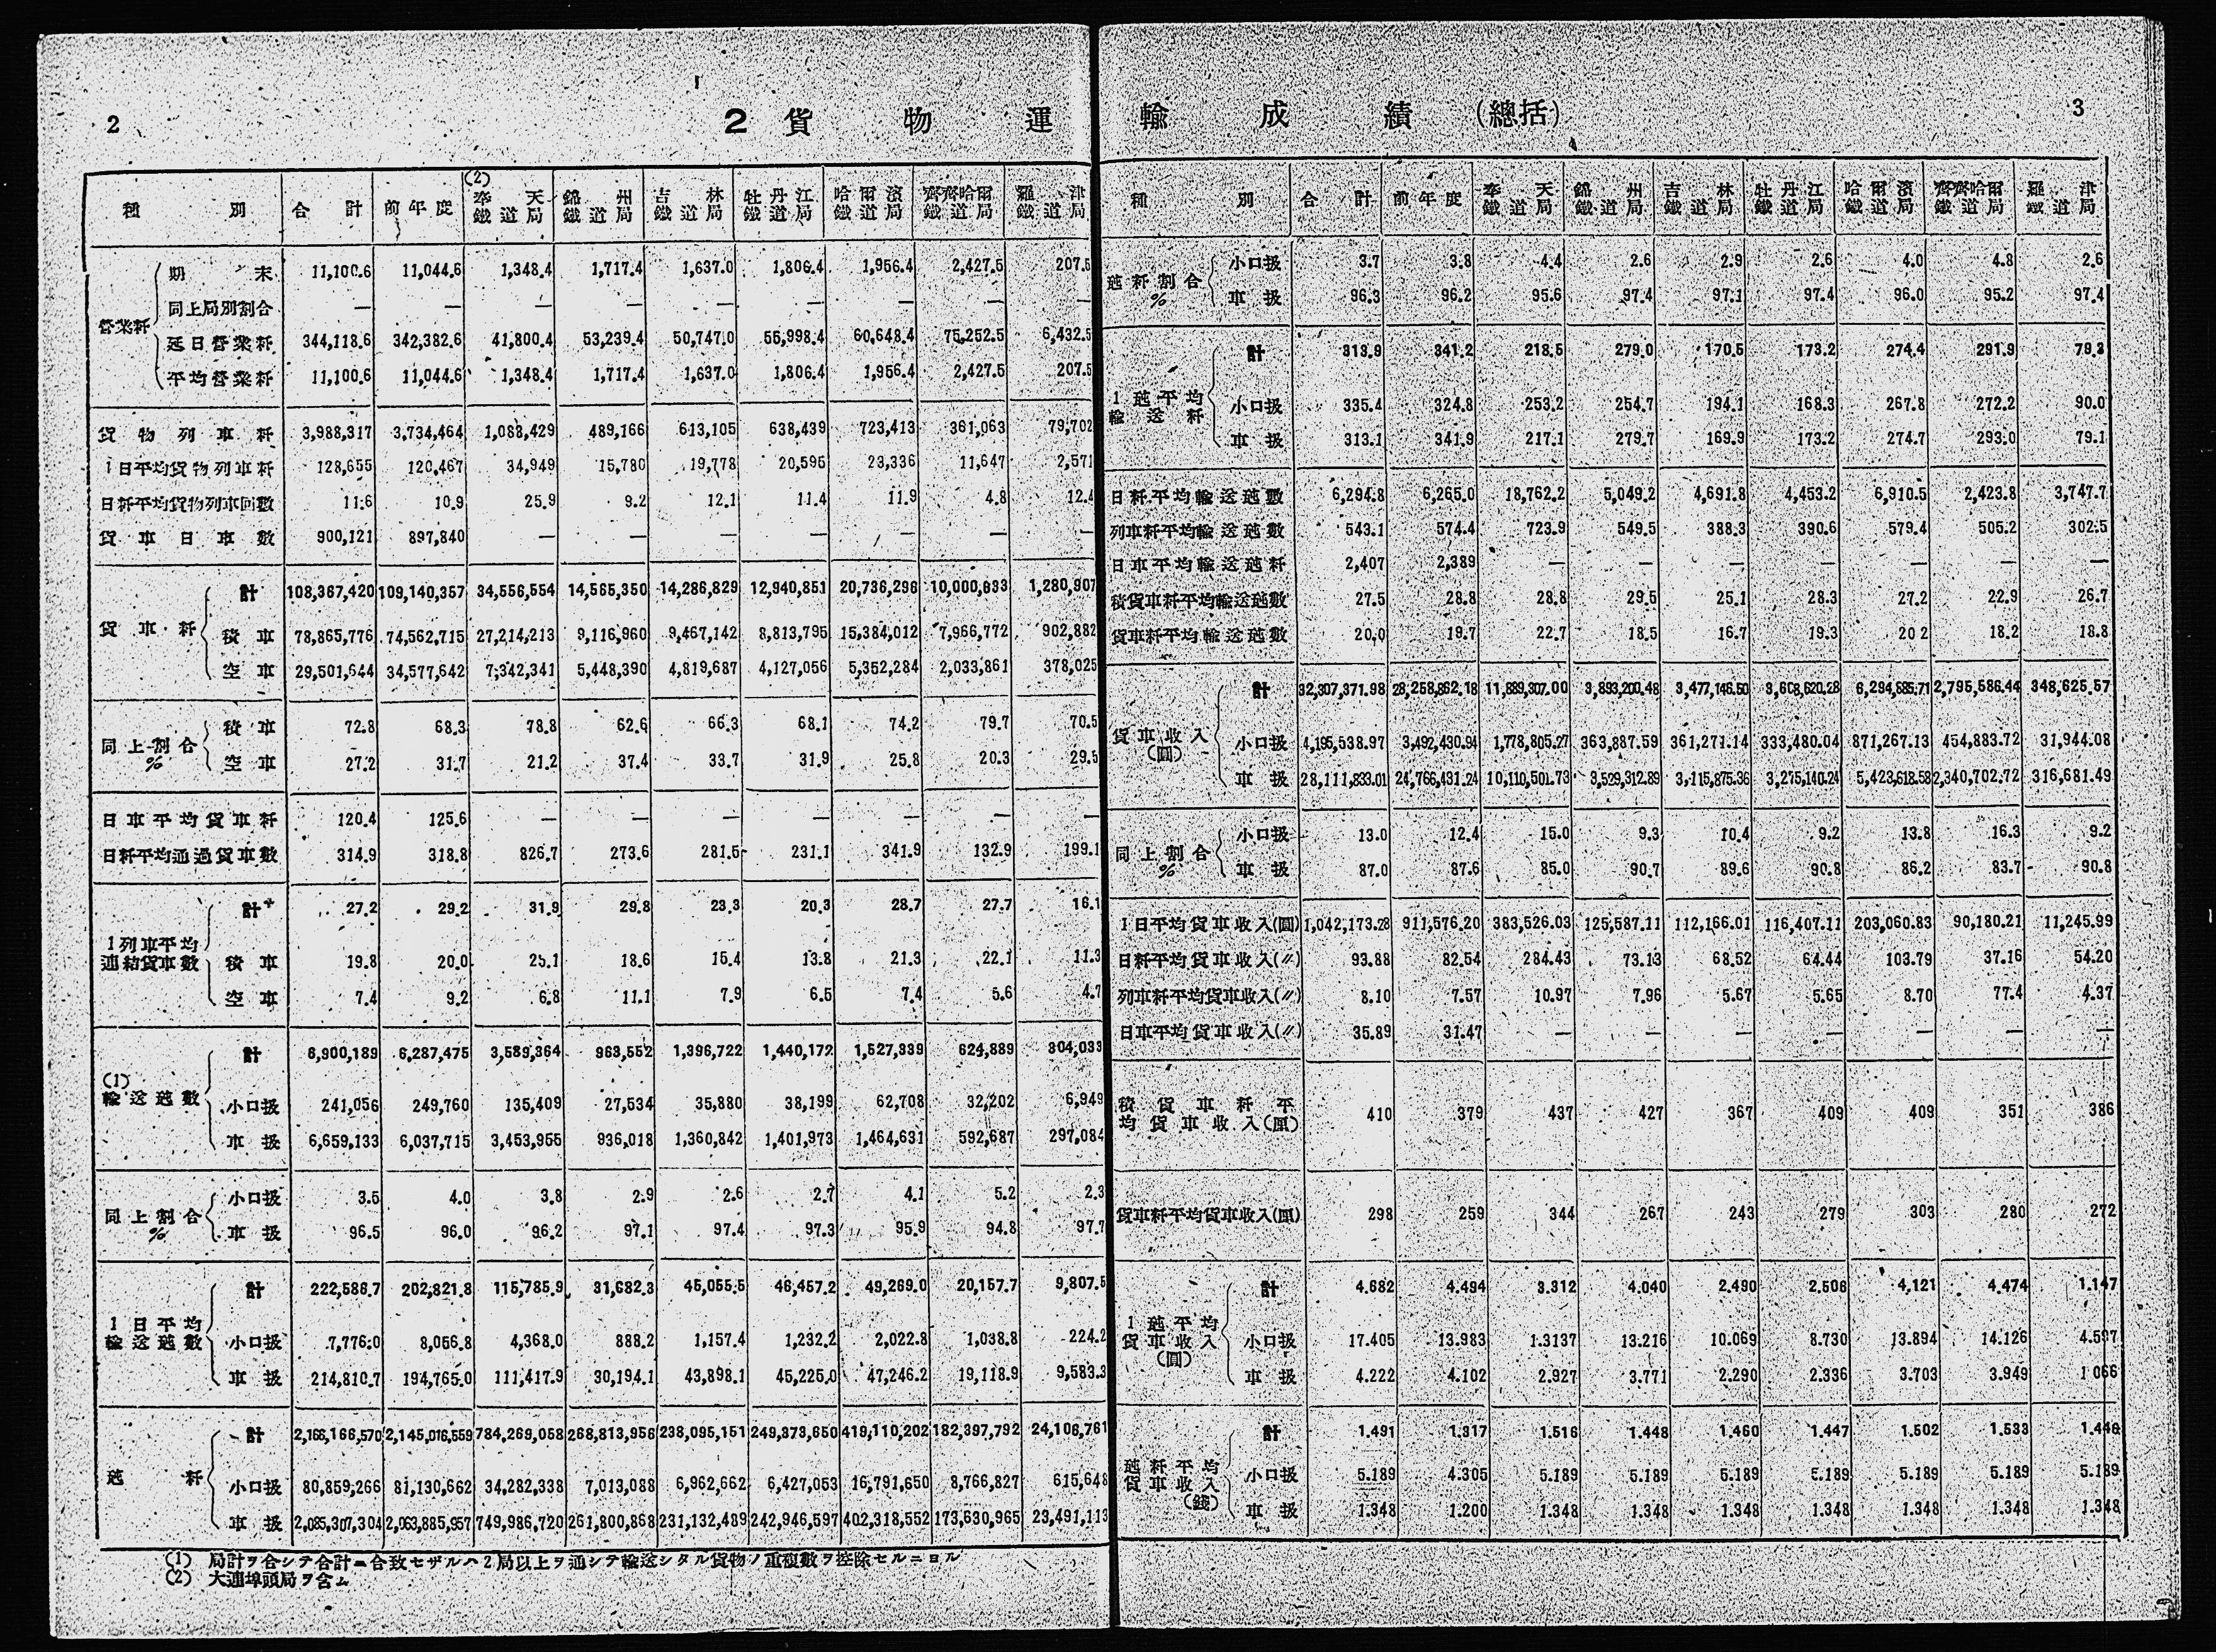 2
2 貨 物 運
種 別 合 計 前年度 (2) 奉天鐵道局 錦州鐵道局 吉林鐵道局 牡丹江鐵道局 哈爾濱鐵道局 齊齊哈爾鐵道局 羅津鐵道局
營業粁 期末 11,100.6 11,044.6 1,348.4 1,717.4 1,637.0 1,806.4 1,956.4 2,427.5 207.5
同上局別割合 — — — — — — — — —
延日營業粁 344,118.6 342,382.6 41,800.4 53,239.4 50,747.0 55,998.4 60,648.4 75,252.5 6,432.5
平均營業粁 11,100.6 11,044.6 1,348.4 1,717.4 1,637.0 1,806.4 1,956.4 2,427.5 207.5
貨物列車粁 3,988,317 3,734,464 1,083,429 489,166 613,105 638,439 723,413 361,063 79,702
1日平均貨物列車粁 128,655 120,467 34,949 15,780 19,778 20,595 23,336 11,647 2,571
日粁平均貨物列車回數 11.6 10.9 25.9 9.2 12.1 11.4 11.9 4.8 12.4
貨車日車數 900,121 897,840 — — — — — — —
貨車粁 計 108,367,420 109,140,357 34,556,554 14,565,350 14,286,829 12,940,851 20,736,296 10,000,633 1,280,907
積車 78,865,776 74,562,715 27,214,213 9,116,960 9,467,142 8,813,795 15,384,012 7,966,772 902,882
空車 29,501,644 34,577,642 7,342,341 5,448,390 4,819,687 4,127,056 5,352,284 2,033,861 378,025
同上割合% 積車 72.8 68.3 78.8 62.6 66.3 68.1 74.2 79.7 70.5
空車 27.2 31.7 21.2 37.4 33.7 31.9 25.8 20.3 29.5
日車平均貨車粁 120.4 125.6 — — — — — — —
日粁平均通過貨車數 314.9 318.8 826.7 273.6 281.5 231.1 341.9 132.9 199.1
1列車平均連結貨車數 計 27.2 29.2 31.9 29.8 23.3 20.3 28.7 27.7 16.1
積車 19.8 20.0 25.1 18.6 15.4 13.8 21.3 22.1 11.3
空車 7.4 9.2 6.8 11.1 7.9 6.5 7.4 5.6 4.7
(1) 輸送瓲數 計 6,900,189 6,287,475 3,589,364 963,552 1,396,722 1,440,172 1,527,339 624,889 304,033
小口扱 241,056 249,760 135,409 27,534 35,880 38,199 62,708 32,202 6,949
車扱 6,659,133 6,037,715 3,453,955 936,018 1,360,842 1,401,973 1,464,631 592,687 297,084
同上割合% 小口扱 3.5 4.0 3.8 2.9 2.6 2.7 4.1 5.2 2.3
車扱 96.5 96.0 96.2 97.1 97.4 97.3 95.9 94.8 97.7
1日平均輸送瓲數 計 222,586.7 202,821.8 115,785.9 31,682.3 45,055.5 46,457.2 49,269.0 20,157.7 9,807.5
小口扱 7,776.0 8,056.8 4,368.0 888.2 1,157.4 1,232.2 2,022.8 1,038.8 224.2
車扱 214,810.7 194,765.0 111,417.9 30,194.1 43,898.1 45,225.0 47,246.2 19,118.9 9,583.3
瓲粁 計 2,166,166,570 2,145,016,559 784,269,058 268,813,956 238,095,151 249,373,650 419,110,202 182,397,792 24,106,761
小口扱 80,859,266 81,130,662 34,282,338 7,013,088 6,962,662 6,427,053 16,791,650 8,766,827 615,648
車扱 2,085,307,304 2,063,885,957 749,986,720 261,800,868 231,132,489 242,946,597 402,318,552 173,630,965 23,491,113
(1) 局計ヲ合シテ合計ニ合致セザルハ2局以上ヲ通シテ輸送シタル貨物ノ重複數ヲ控除セルニヨル
(2) 大連埠頭局ヲ含ム
輸 成 績 (總括)
3
種 別 合 計 前年度 奉天鐵道局 錦州鐵道局 吉林鐵道局 牡丹江鐵道局 哈爾濱鐵道局 齊齊哈爾鐵道局 羅津鐵道局
瓲粁割合% 小口扱 3.7 3.8 4.4 2.6 2.9 2.6 4.0 4.8 2.6
車扱 96.3 96.2 95.6 97.4 97.1 97.4 96.0 95.2 97.4
1瓲平均輸送粁 計 313.9 341.2 218.5 279.0 170.5 173.2 274.4 291.9 79.3
小口扱 335.4 324.8 253.2 254.7 194.1 168.3 267.8 272.2 90.0
車扱 313.1 341.9 217.1 279.7 169.9 173.2 274.7 293.0 79.1
日粁平均輸送瓲數 6,294.8 6,265.0 18,762.2 5,049.2 4,691.8 4,453.2 6,910.5 2,423.8 3,747.7
列車粁平均輸送瓲數 543.1 574.4 723.9 549.5 388.3 390.6 579.4 505.2 302.5
日車平均輸送瓲粁 2,407 2,389 — — — — — — —
積貨車粁平均輸送瓲數 27.5 28.8 28.8 29.5 25.1 28.3 27.2 22.9 26.7
貨車粁平均輸送瓲數 20.0 19.7 22.7 18.5 16.7 19.3 20 2 18.2 18.8
貨車收入(圓) 計 32,307,371.98 28,258,862.18 11,889,307.00 3,893,200.48 3,477,146.50 3,608,620.28 6,294,885.71 2,795,586.44 348,625.57
小口扱 4,195,538.97 3,492,430.94 1,778,805.27 363,887.59 361,271.14 333,480.04 871,267.13 454,883.72 31,944.08
車扱 28,111,833.01 24,766,431.24 10,110,501.73 3,529,312.89 3,115,875.36 3,275,140.24 5,423,618.58 2,340,702.72 316,681.49
同上割合% 小口扱 13.0 12.4 15.0 9.3 10.4 9.2 13.8 16.3 9.2
車扱 87.0 87.6 85.0 90.7 89.6 90.8 86.2 83.7 90.8
1日平均貨車收入(圓) 1,042,173.28 911,576.20 383,526.03 125,587.11 112,166.01 116,407.11 203,060.83 90,180.21 11,245.99
日粁平均貨車收入(〃) 93.88 82.54 284.43 73.13 68.52 64.44 103.79 37.16 54.20
列車粁平均貨車收入(〃) 8.10 7.57 10.97 7.96 5.67 5.65 8.70 77.4 4.37
日車平均貨車收入(〃) 35.89 31.47 — — — — — — —
積貨車粁平均貨車收入(厘) 410 379 437 427 367 409 409 351 386
貨車粁平均貨車收入(厘) 298 259 344 267 243 279 303 280 272
1瓲平均貨車收入(圓) 計 4.682 4.494 3.312 4.040 2.490 2.506 4,121 4.474 1.147
小口扱 17.405 13.983 1.3137 13.216 10.069 8.730 13.894 14.126 4.597
車扱 4.222 4.102 2.927 3.771 2.290 2.336 3.703 3.949 1 066
瓲粁平均貨車收入(錢) 計 1.491 1.317 1.516 1.448 1.460 1.447 1.502 1.533 1.446
小口扱 5.189 4.305 5.189 5.189 5.189 5.189 5.189 5.189 5.189
車扱 1.348 1.200 1.348 1.348 1.348 1.348 1.348 1.348 1.348